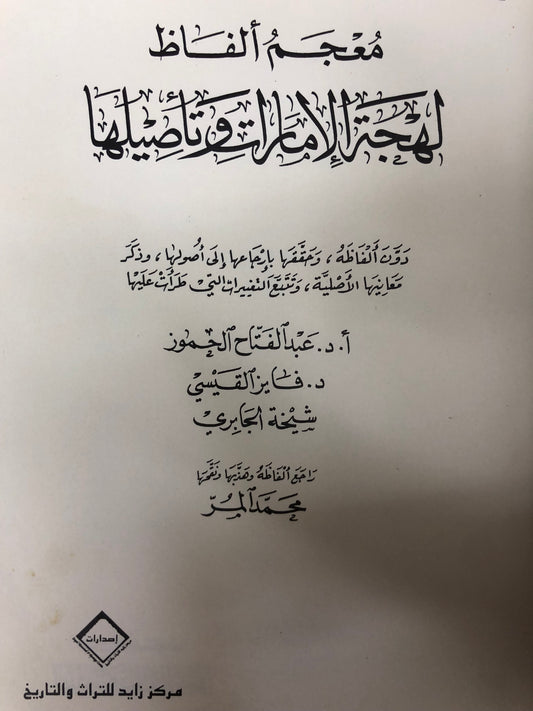 مُعْجَمُ ألفَاظ
لهْجَة الإمَارات وَتأصِيلهَا
دَوَّنَ ألفَاظَهُ ، وَحَقَّقَهَا بإرْجَاعهَا إلىَ أصُولهَا ، وذكَر
مَعَانيهَا الأصْليَّة ، وتَتبَّعَ التغييرات التي طَرَأتْ عَليْها
أ . د . عَبْد الفَتَّاح الحمُوز
د . فَايز القَيْسِي
شيْخَة الجَابري
رَاجَعَ ألفَاظهُ وهَذَّبهَا ونَقَّحَهَا
محَمَّد المُرّ
إصدارات
مركز زايد للتراث والتاريخ